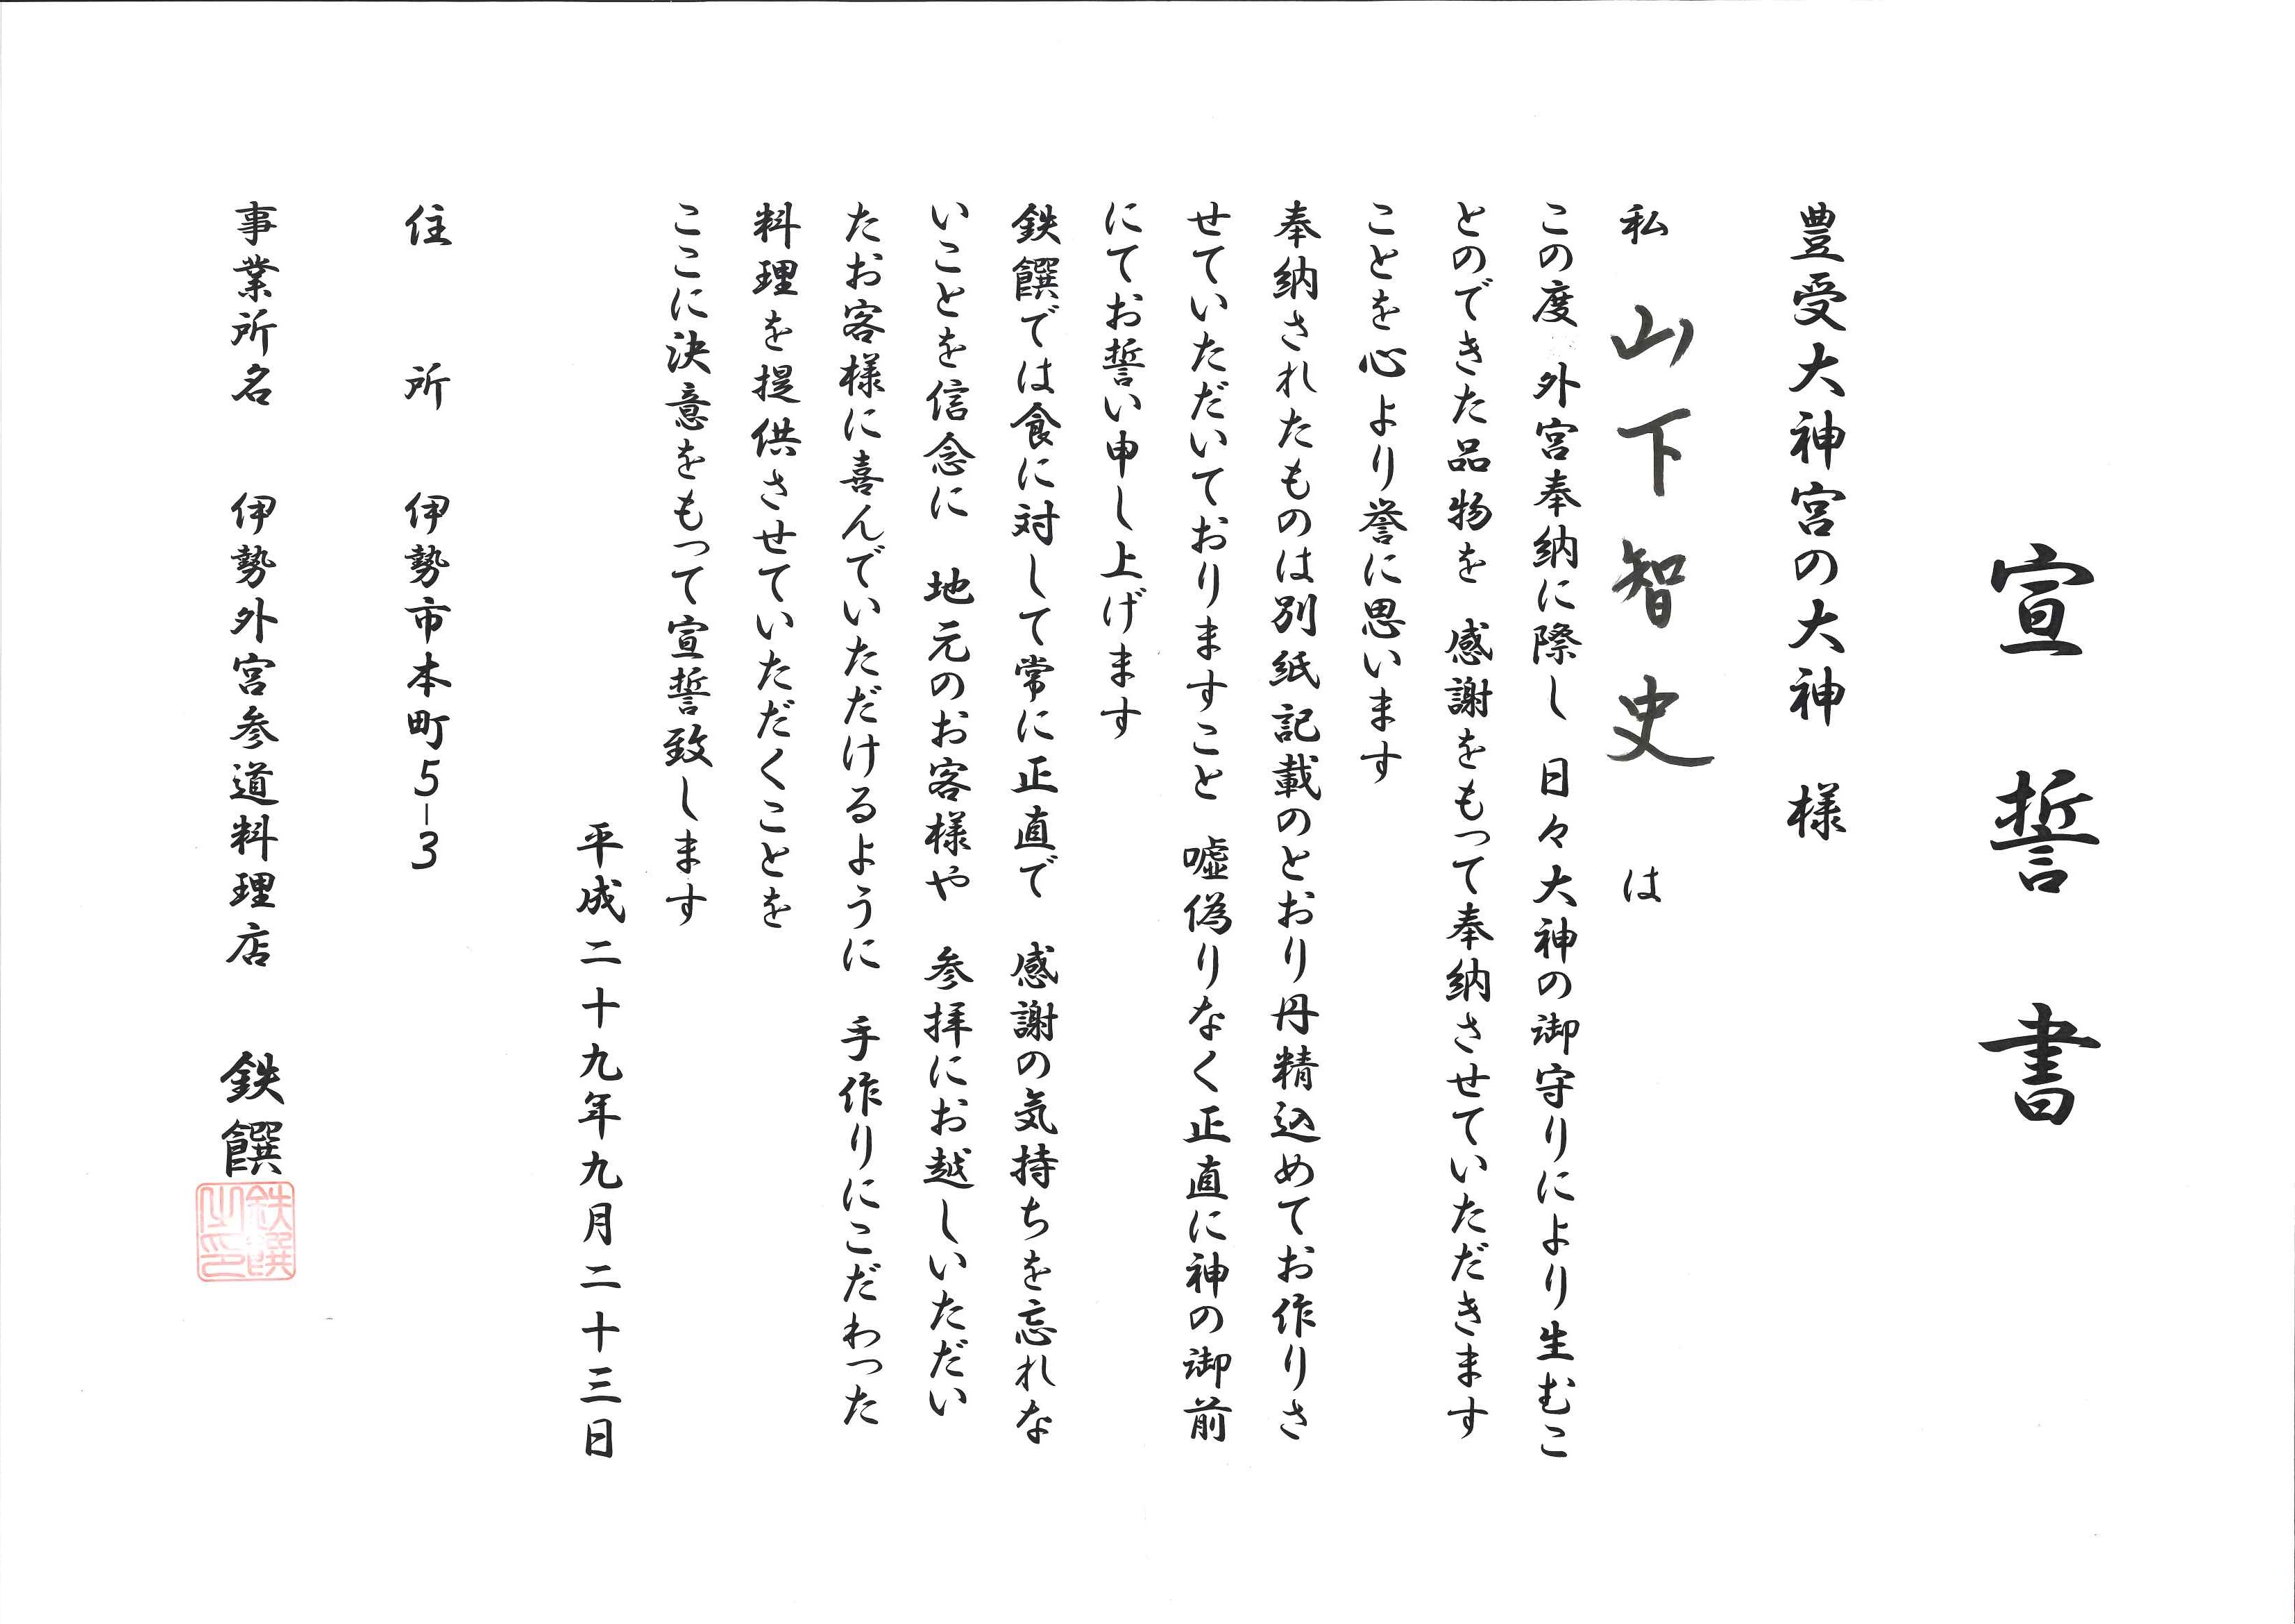 宣誓書
豊受大神宮の大神 様
私 山下智史 は
この度 外宮奉納に際し 日々大神の御守りにより生むこ
とのできた品物を 感謝をもって奉納させていただきます
ことを心より誉に思います
奉納されたものは別紙記載のとおり丹精込めてお作りさ
せていただいておりますこと 嘘偽りなく正直に神の御前
にてお誓い申し上げます
鉄饌では食に対して常に正直で 感謝の気持ちを忘れな
いことを信念に 地元のお客様や 参拝にお越しいただい
たお客様に喜んでいただけるように 手作りにこだわった
料理を提供させていただくことを
ここに決意をもって宣誓致します
平成二十九年九月二十三日
住所 伊勢市本町5-3
事業所名 伊勢外宮参道料理店 鉄饌
鉄饌
之印